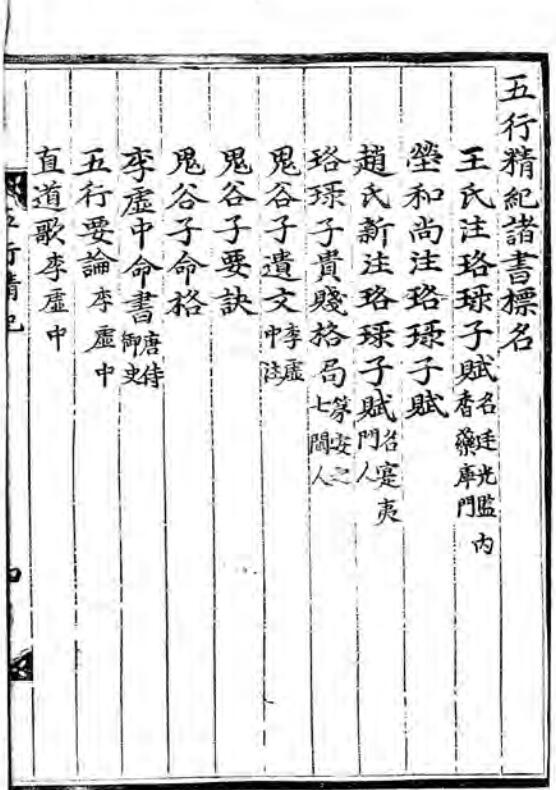 五行精紀諸書標名
王氏注珞琭子賦名廷光監內香藥庫門
瑩和尚注珞琭子賦
趙氏新注珞琭子賦名寔夷門人
珞琭子貴賤格局篆安之七閩人
鬼谷子遺文李虛中注
鬼谷子要訣
鬼谷子命格
李虛中命書唐侍御史
五行要論李虛中
直道歌李虛中
五行精紀